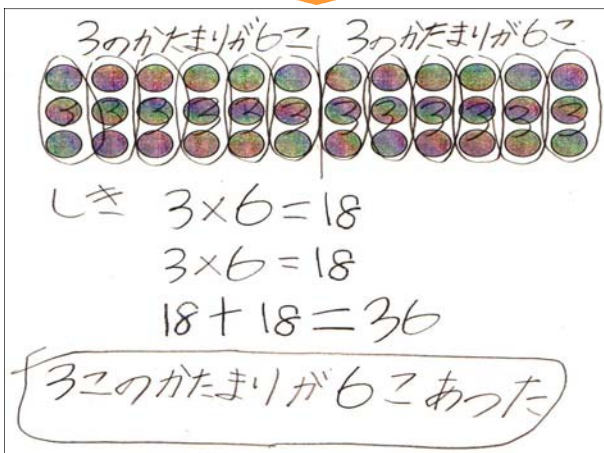 3のかたまりが6こ 3のかたまりが6こ
3 3 3 3 3 3 3 3 3 3 3 3
しき 3×6=18
3×6=18
18+18=36
3このかたまりが6こあった